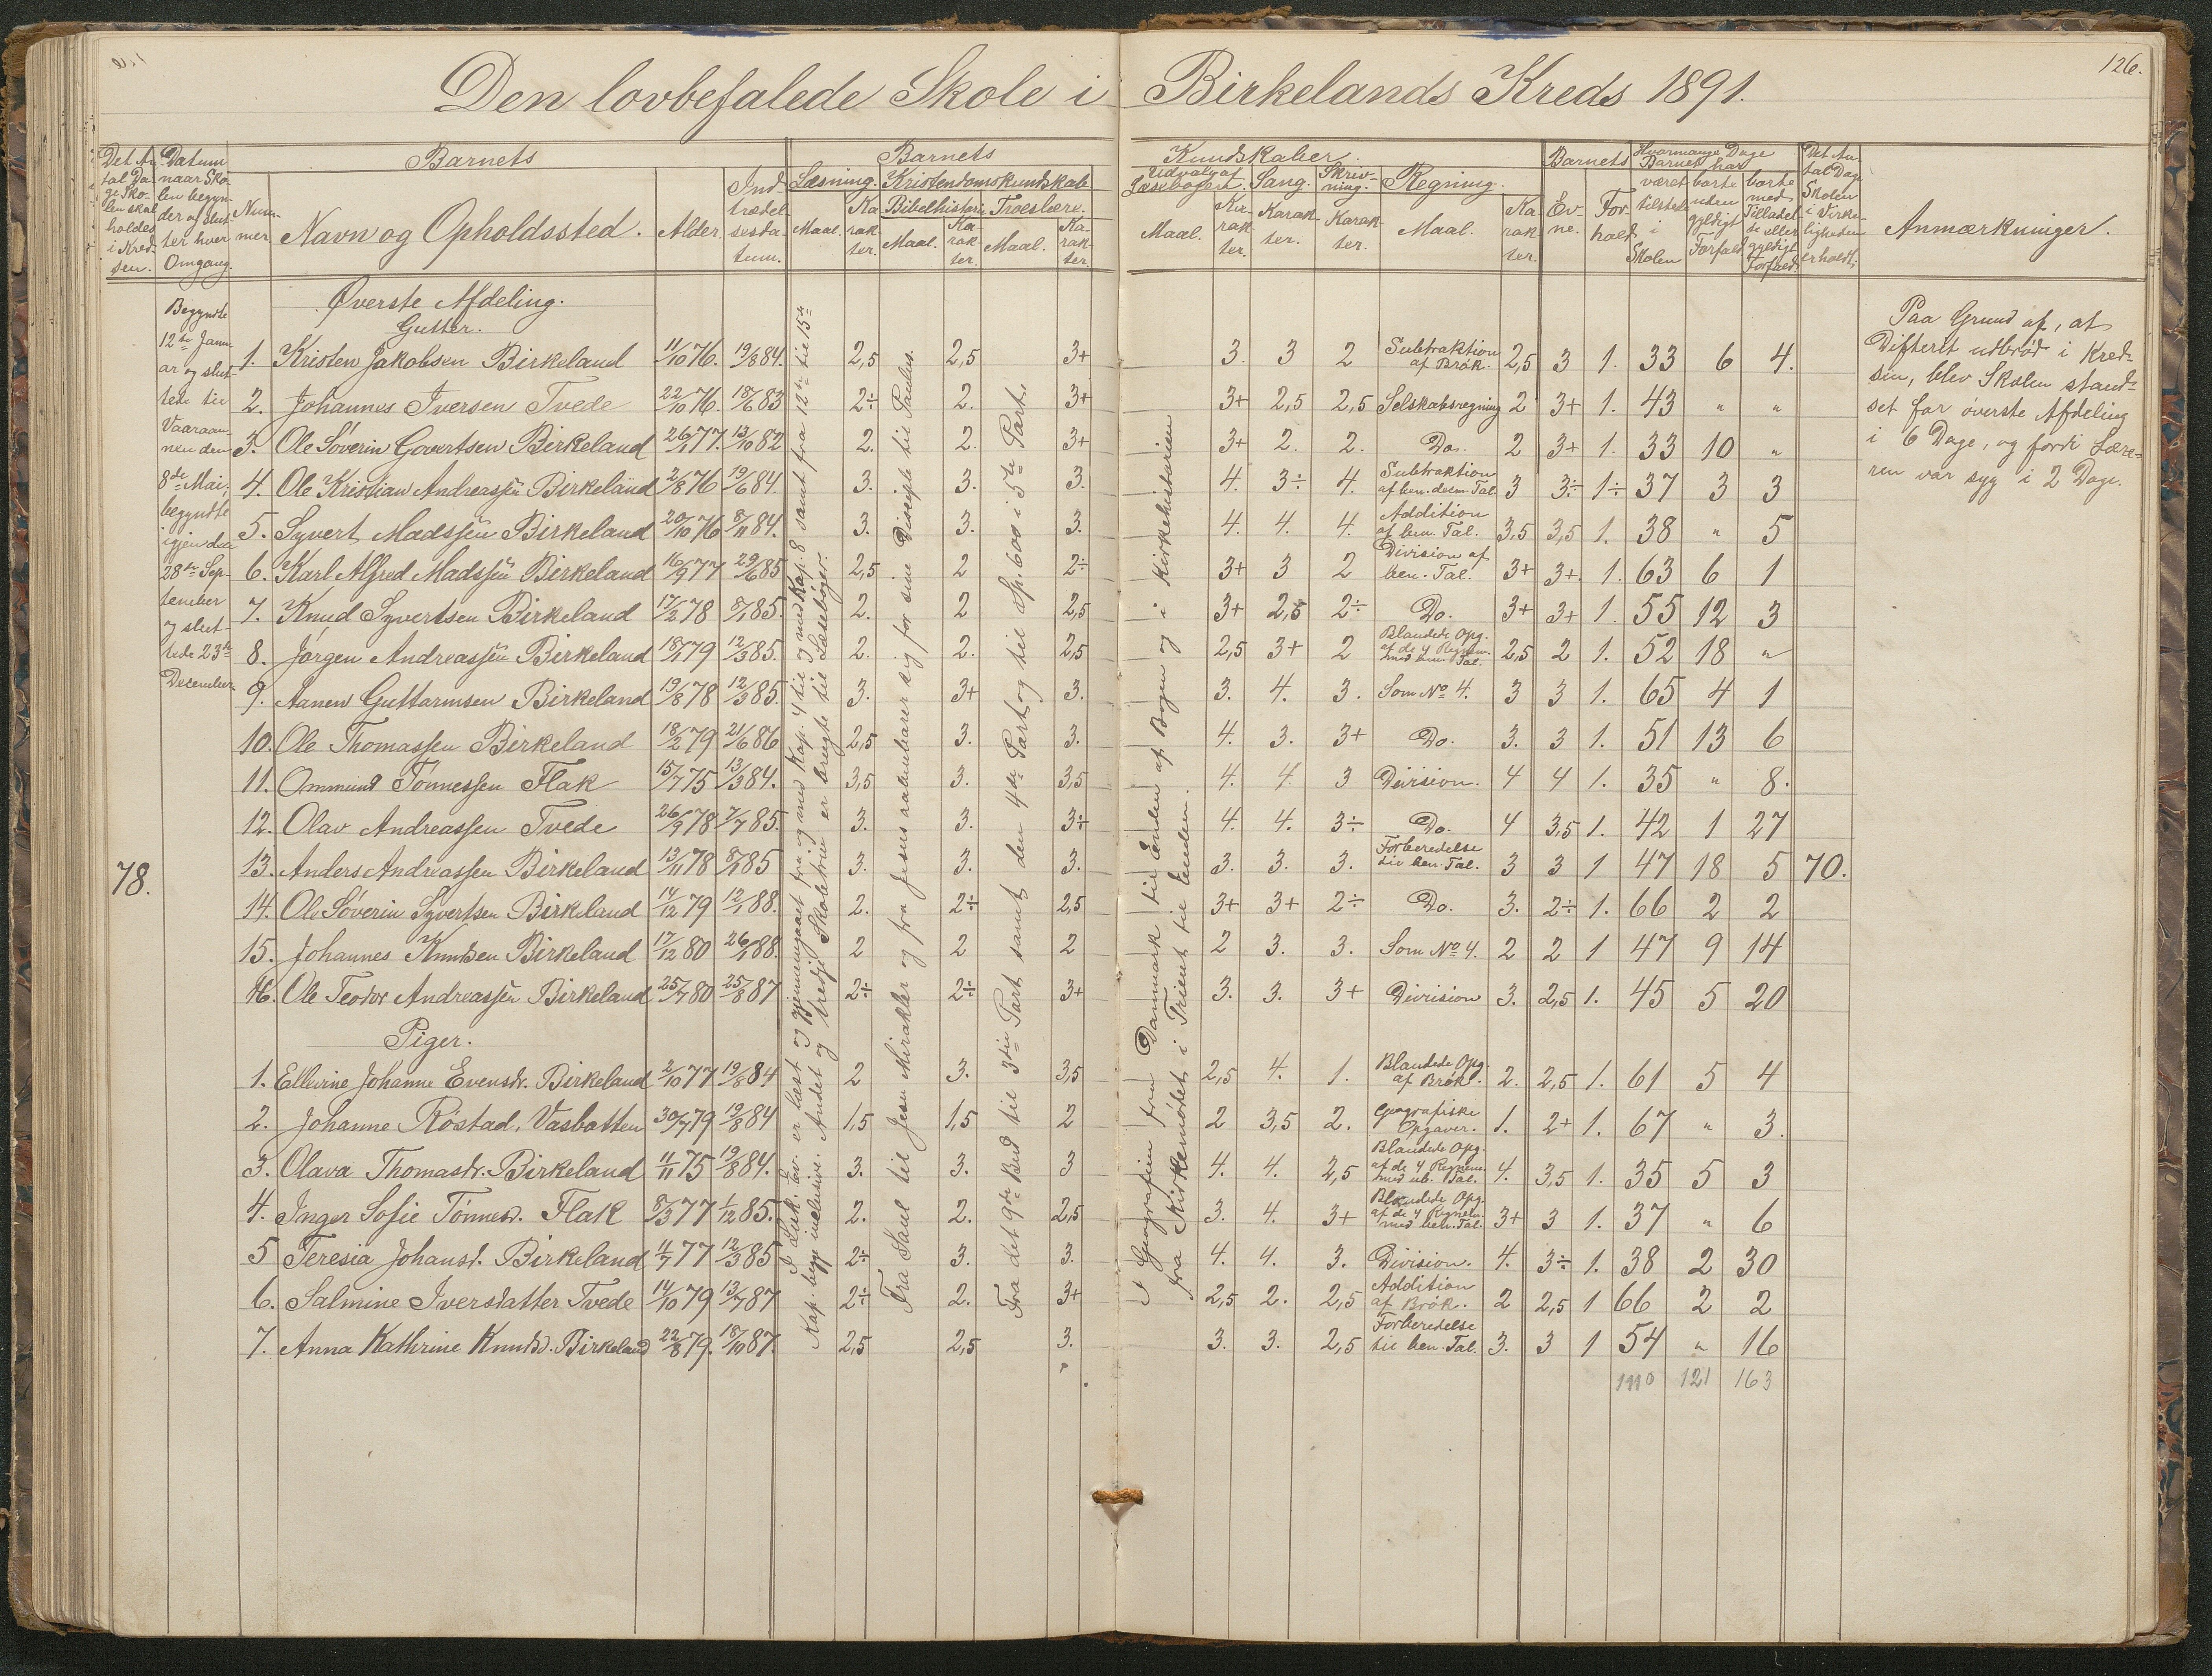 126.
Den lovbefalede Skole i Birkelands Kreds 1891.
Det An-
tal Da-
ge Sko-
len skal
holdes
i Kred-
sen.
Datum
naar Sko-
len begyn-
der og slut-
ter hver
Omgang.
Barnets
Num-
mer.
Navn og Opholdssted.
Alder.
Ind-
trædel-
sesda-
tum.
Barnets Kundskaber.
Læsning.
Maal.
Ka-
rak-
ter.
Kristendomskundskab
Bibelhistorie
Maal.
Ka-
rak-
ter.
Troeslære.
Maal.
Ka-
rak-
ter.
Udvalg af
Læsebogen.
Maal.
Ka-
rak-
ter.
Sang.
Karak-
ter.
Skriv-
ning.
Karak-
ter.
Regning.
Maal.
Ka-
rak-
ter.
Barnets
Ev-
ne.
For-
hold.
Hvormange Dage
Barnet har
været
tilstede
i
Skolen
borte
uden
gyldigt
Forfald
borte
med
Tilladel-
se eller
gyldigt
Forfald
Det An-
tal Dage
Skolen
i Virke-
ligheden
er holdt.
Anmærkninger.
78.
Begyndte
12te Janu-
ar og slut-
tede til
Vaaraan-
nen den
8de Mai,
begyndte
igjen den
28de Sep-
tember
og slut-
tede 23de
December.
Øverste Afdeling.
Gutter.
1. Kristen Jakobsen Birkeland 11/10 76. 19/8 84. 2,5 2,5 3+ 3. 3 2 Subtraktion af Brøk. 2,5 3 1. 33 6 4.
2. Johannes Iversen Tvede 22/10 76. 18/6 83 2÷ 2. 3+ 3+ 2,5 2,5 Selskabsregning 2 3+ 1. 43 " "
3. Ole Söverin Govertsen Birkeland 26/1 77. 13/10 82 2. 2. 3+ 3+ 2. 2. Do. 2 3+ 1. 33 10 "
4. Ole Kristian Andreassen Birkeland 2/8 76 19/6 84. 3. 3. 3. 4. 3÷ 4. Subtraktion af ben. decm. Tal. 3 3÷ 1÷ 37 3 3
5. Syvert Madssen Birkeland 20/10 76 8/11 84. 3. 3. 3. 4. 4. 4. Addition af ben. Tal. 3,5 3,5 1. 38 " 5
6. Karl Alfred Madssen Birkeland 16/9 77 29/6 85 2,5 2 2÷ 3+ 3 2 Division af ben. Tal. 3+ 3+ 1. 63 6 1
7. Knud Syvertsen Birkeland 17/2 78 8/1 85. 2. 2 2,5 3+ 2,5 2÷ Do. 3+ 3+ 1. 55 12 3
8. Jørgen Andreassen Birkeland 18/1 79 12/3 85. 2. 2. 2,5 2,5 3+ 2 Blandede Opg. af de 4 Regnem. med ben. Tal. 2,5 2 1. 52 18 "
9. Aanen Guttormsen Birkeland 19/8 78 12/3 85. 3. 3+ 3. 3. 4. 3. Som No 4. 3 3 1. 65 4 1
10. Ole Thomassen Birkeland 18/2 79 21/6 86 2,5 3. 3. 4. 3. 3+ Do. 3. 3 1. 51 13 6
11. Ommund Tönnessen Flak 15/7 75 13/3 84. 3,5 3. 3,5 4. 4. 3 Division. 4 4 1. 35 " 8.
12. Olav Andreassen Tvede 26/9 78 7/7 85. 3. 3. 3+ 4. 4. 3÷ Do. 4 3,5 1. 42 1 27
13. Anders Andreassen Birkeland 13/11 78 8/1 85 3. 3. 3. 3. 3. 3. Forberedelse til ben. Tal. 3 3 1 47 18 5 70.
14. Ole Söverin Syvertsen Birkeland 14/12 79 12/1 88. 2. 2÷ 2,5 3+ 3+ 2÷ Do. 3. 2÷ 1. 66 2 2
15. Johannes Knudsen Birkeland 17/12 80 26/1 88. 2 2 2 2 3. 3. Som No 4. 2 2 1 47 9 14
16. Ole Teodor Andreassen Birkeland 25/7 80 25/8 87 2÷ 2÷ 3+ 3. 3. 3+ Division 3. 2,5 1. 45 5 20
Piger.
1. Ellevine Johanne Evensdr. Birkeland 2/10 77 19/8 84 2 3. 3,5 2,5 4. 1. Blandede Opg. af Brök. 2. 2,5 1. 61 5 4
2. Johanne Röstad, Vasbotten 30/7 79 19/8 84 1,5 1,5 2 2 3,5 2. Geografiske Opgaver. 1. 2+ 1. 67 " 3.
3. Olava Thomasdr. Birkeland 4/11 75 19/8 84. 3. 3. 3 4. 4. 2,5 Blandede Opg. af de 4 Regnem. med ub. Tal. 4. 3,5 1. 35 5 3
4. Inger Sofie Tönnesd. Flak 8/3 77 1/12 85. 2. 2. 2,5 3. 4. 3+ Blandede Opg. af de 4 Regnem. med ben. Tal. 3+ 3 1. 37 " 6
5 Teresia Johansd. Birkeland 4/7 77 12/3 85 2÷ 3. 3. 4. 4. 3. Division. 4. 3÷ 1. 38 2 30
6. Salmine Iversdatter Tvede 14/10 79 13/7 87 2÷ 2. 3+ 2,5 2. 2,5 Addition af Brök. 2 2,5 1 66 2 2
7. Anna Kathrine Knudsd. Birkeland 22/8 79. 18/10 87. 2,5 2,5 3. 3. 3. 2,5 Forberedelse til ben. Tal. 3. 3 1 54 " 16
1110 121 163
I Læseb. er læst og gjennemgaaet fra og med Kap. 4 til og med Kap. 8 samt fra 12te til 15de
Kap. begge inclusive. Andet og tredje Skoletrin er brugte til Læsebøger.
Fra Saul til Jesu Mirakler og fra Jesus aabenbarer sig for sine Disciple til Paulus.
Fra det 9de Bud til 3die Part samt den 4de Part og til Sp. 600 i 5te Part.
I Geografien fra Danmark til Enden af Bogen og i Kirkehistorien
fra Kirkemödet i Trient til Enden.
Paa Grund af, at
Difterit udbröd i Kred-
sen, blev Skolen stand-
set for överste Afdeling
i 6 Dage, og fordi Lære-
ren var syg i 2 Dage.